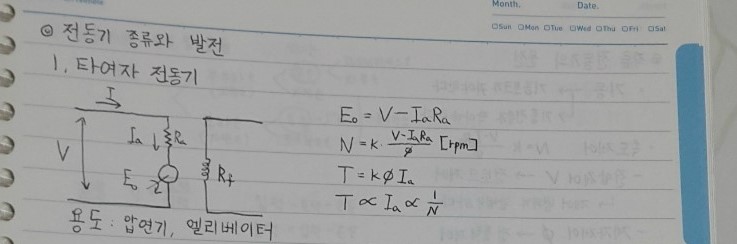 Month. Date.
□Sun □Mon □Tue □Wed □Thu □Fri □Sat
◎ 전동기 종류와 발전
1. 타여자 전동기
I
V
Ia ↓ Ra
E₀
Rf
E₀ = V - IaRa
N = k · (V - IaRa)/ø [rpm]
T = køIa
T ∝ Ia ∝ 1/N
용도 : 압연기, 엘리베이터